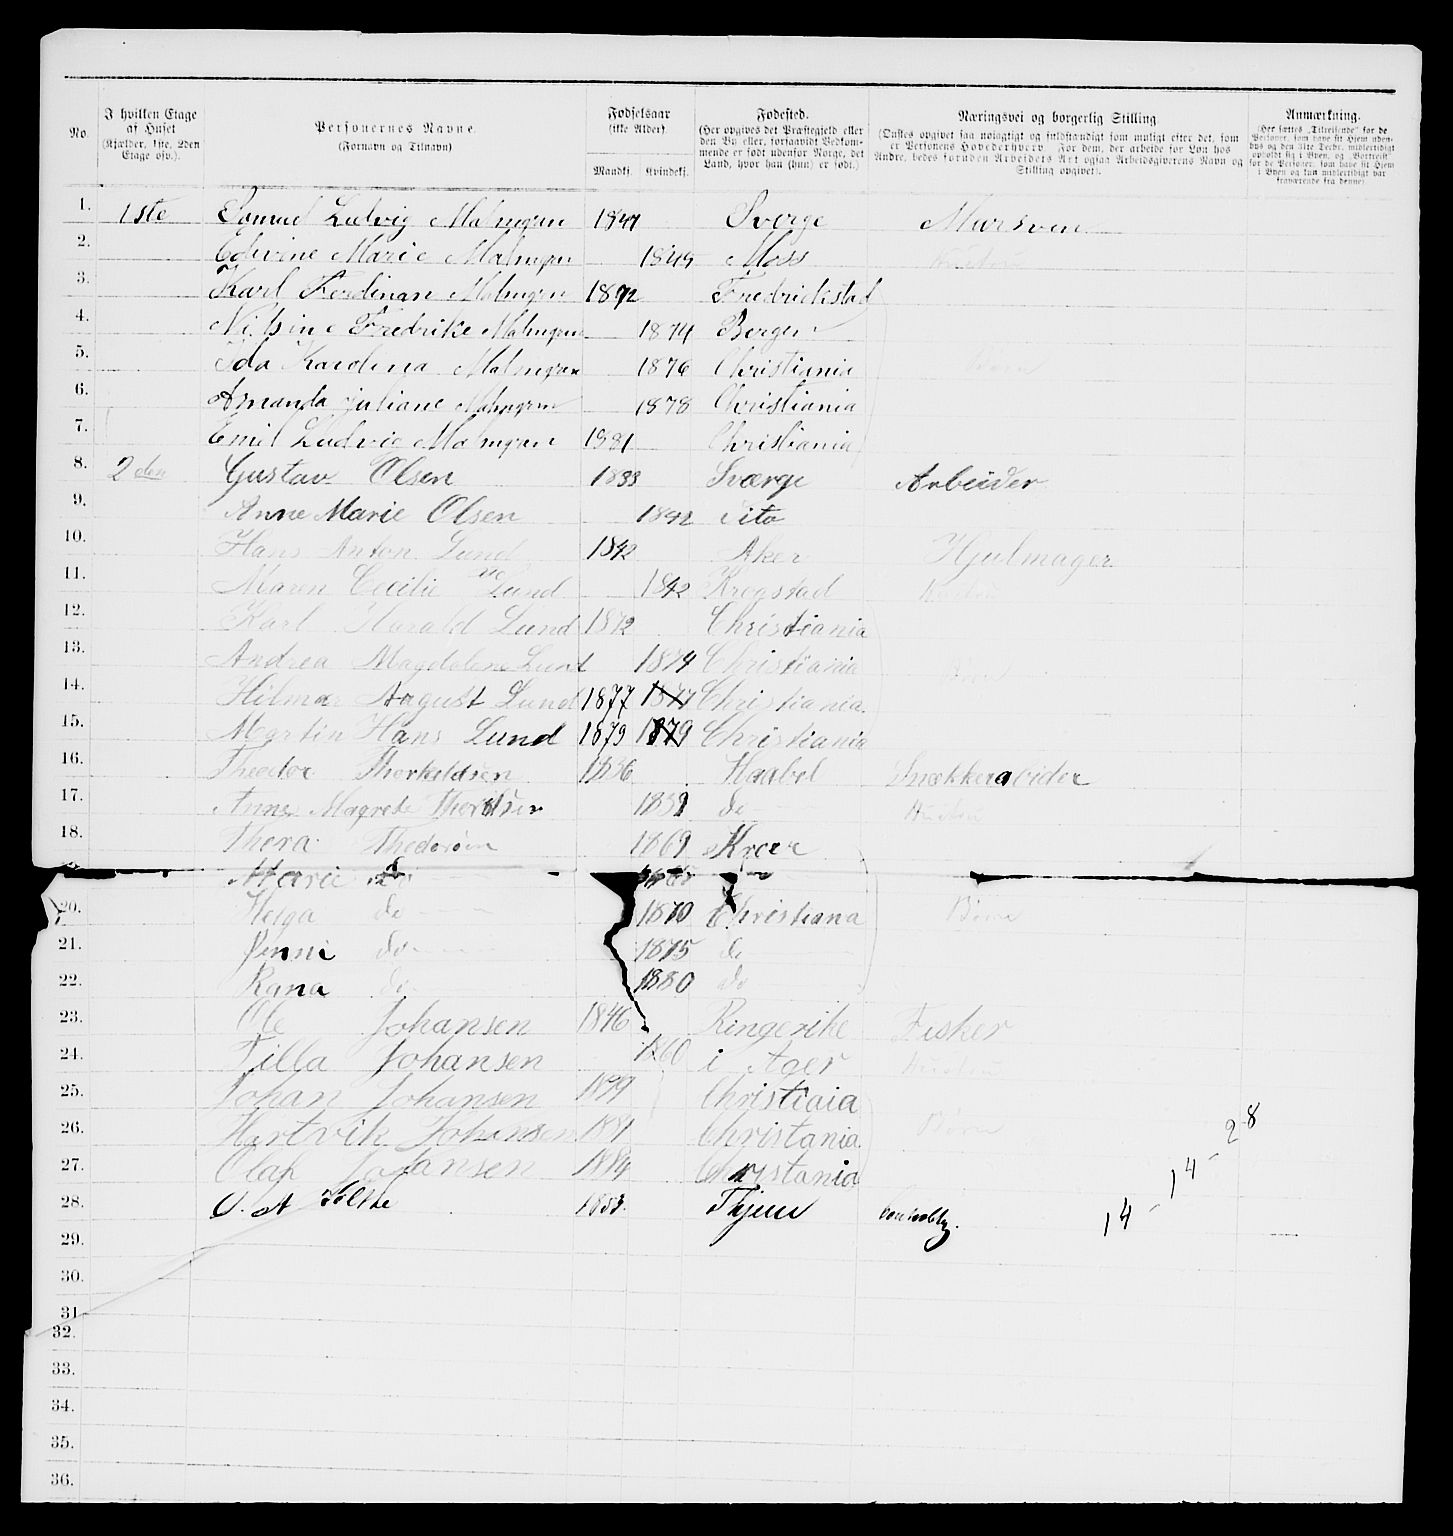 No.
I hvilken Etage af Huset (Kjælder, 1ste, 2den Etage osv.).
Personernes Navne. (Fornavn og Tilnavn)
Fødselsaar (ikke Alder). Mandkj. Kvindekj.
Fødested. (Her opgives det Præstegjeld eller den By eller, forsaavidt Vedkommende er født udenfor Norge, det Land, hvor han (hun) er født.)
Næringsvei og borgerlig Stilling (Ønskes opgivet saa nøiagtigt og fuldstændigt som muligt efter det, som er Personens Hovederhverv. For dem, der arbeide for Løn hos Andre, bedes foruden Arbeidets Art ogsaa Arbeidsgiverens Navn og Stilling opgivet).
Anmærkning. (Her sættes „Tilreisende“ for de Personer, som have sit Hjem udenbys og den 31te Decbr. midlertidigt opholdt sig i Byen, og „Bortreist“ for de Personer, som have sit Hjem i Byen og kun midlertidigt var fraværende fra denne)
1. 1ste Samuel Ludvig Malmgran 1847 Sverge Mursven
2. Edevine Marie Malmgran 1845 Moss Hustru
3. Karl Ferdinan Malmgren 1872 Fredrickstad
4. Nilsine Fredrike Malmgran 1874 Bergen
5. Ida Karolina Malmgran 1876 Christiania Børn
6. Amanda Juliane Malmgran 1878 Christiania
7. Emil Ludvig Malmgran 1881 Christiania
8. 2den Gustav Olsen 1833 Sværge Arbeider
9. Anne Marie Olsen 1842 dito
10. Hans Anton Lund 1842 Aker Hjulmager
11. Maren Cecilie Lund 1842 Krogstad Hustru
12. Karl Harald Lund 1872 Christiania
13. Andrea Magdalene Lund 1874 Christiania Børn
14. Hilmar August Lund 1877 1877 Christiania
15. Martin Hans Lund 1879 1879 Christiania
16. Theodor Thorkildsen 1836 Haabøl Snækkerabider
17. Anne Magrete 1839 do Hustru
18. Thora 1869
Marie do
20. Helga do 1870 Christiana Børn
21. Jenni do 1875 do
22. Ragna do 1880 do
23. Ole Johansen 1846 Ringerike Fisker
24. Tilla Johansen 1860 i Ager Hustru
25. Johan Johansen 1879 Christiaia
26. Hartvik Johansen 1881 Christania Børn
27. Olaf Johansen 1884 Christania
28. 1853
14 - 14 - 28
29.
30.
31
32.
33.
34.
35.
36.